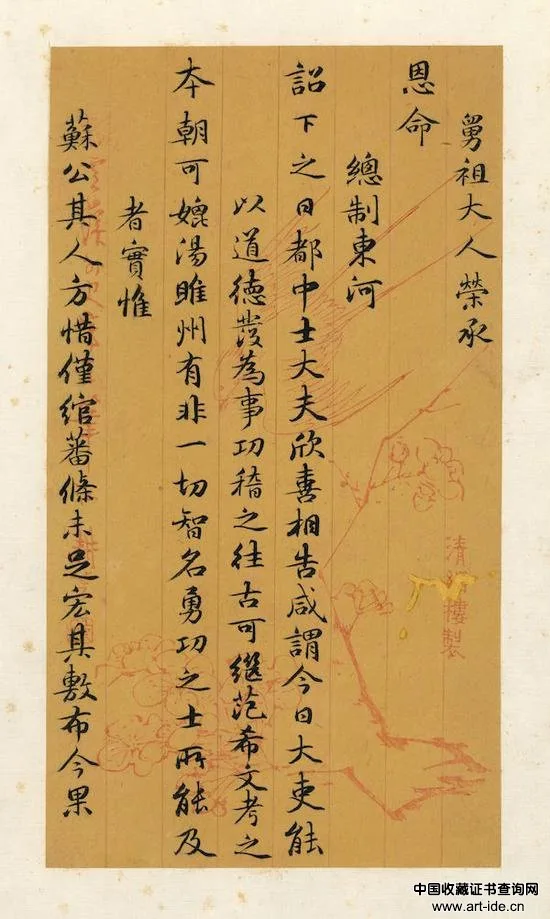 舅祖大人榮承
恩命
總制東河
詔下之日都中士大夫欣喜相告咸謂今日大吏能
以道德發為事功稽之往古可繼范希文考之
本朝可媲湯睢州有非一切智名勇功之士所能及
者實惟
蘇公其人方惜僅綰藩條未足宏其敷布今果
樓製
中国收藏证书查询网
www.art-ide.cn